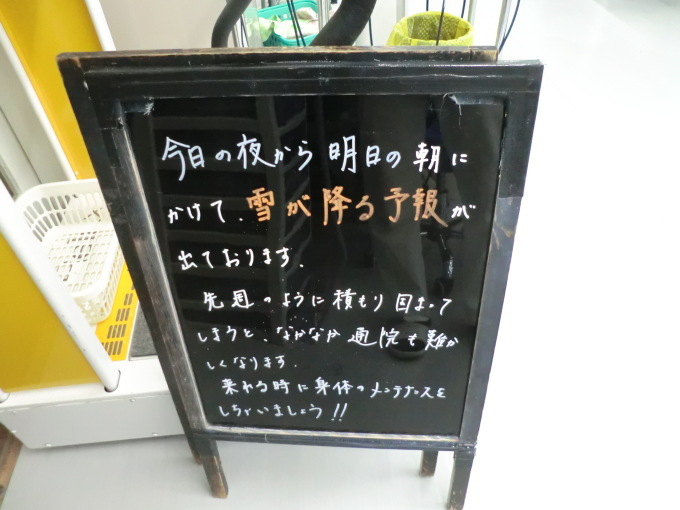 今日の夜から明日の朝に
かけて、雪が降る予報が
出ております、
先週のように積もり固まって
しまうと、なかなか通院も難か
しくなります、
来れる時に身体のメンテナンスを
しちゃいましょう!!